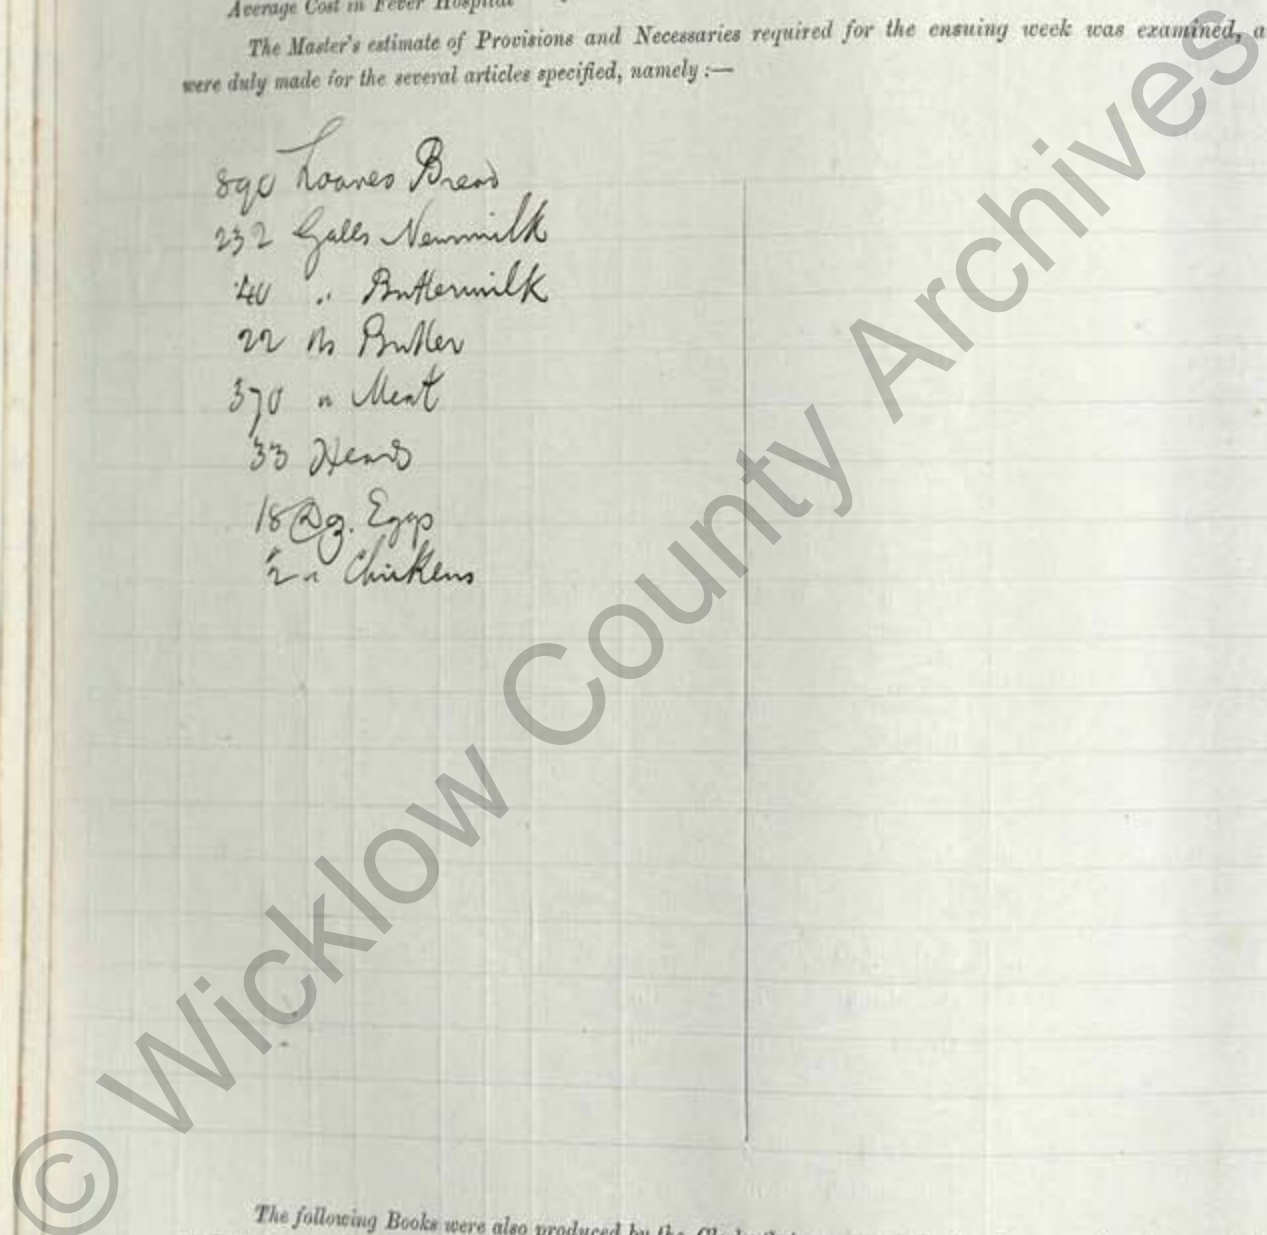 Average Cost in Fever Hospital
The Master's estimate of Provisions and Necessaries required for the ensuing week was examined, a
were duly made for the several articles specified, namely :—
890 Loaves Bread
232 Galls Newmilk
40 " Buttermilk
22 lbs Butter
370 " Meat
33 Heads
18 Doz. Eggs
2 " Chickens
The following Books were also produced by the
© Wicklow County Archives